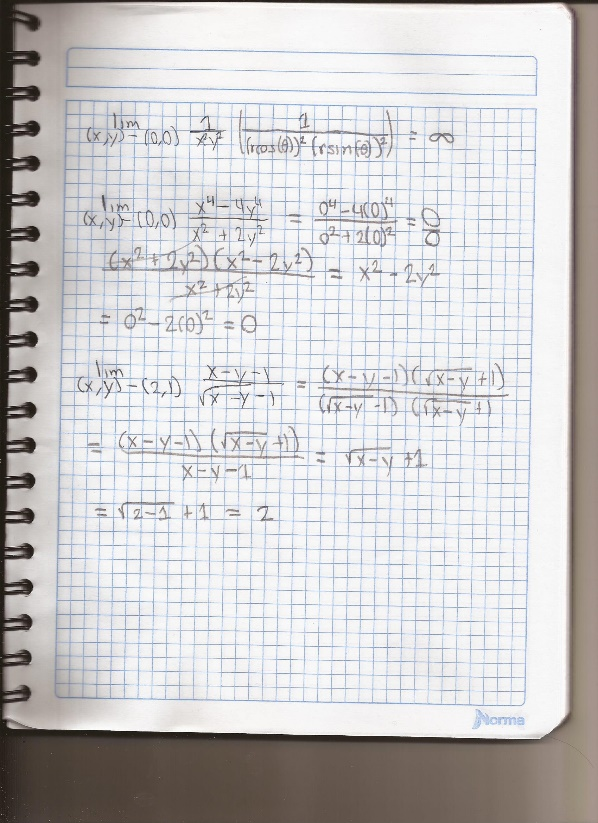 lim (x,y)–(0,0) 1/x²y² (1/((rcos(θ))² (rsin(θ))²)) = ∞
lim (x,y)–(0,0) (x⁴ – 4y⁴)/(x² + 2y²) = (0⁴ – 4(0)⁴)/(0² + 2(0)²) = 0/0
(x² + 2y²)(x² – 2y²)/(x² + 2y²) = x² – 2y²
= 0² – 2(0)² = 0
lim (x,y)–(2,1) (x–y–1)/(√x –y–1) = (x–y–1)(√x–y +1)/((√x–y –1)(√x–y +1)
= (x–y–1)(√x–y +1)/(x–y–1) = √x–y +1
= √2–1 +1 = 2
Norma